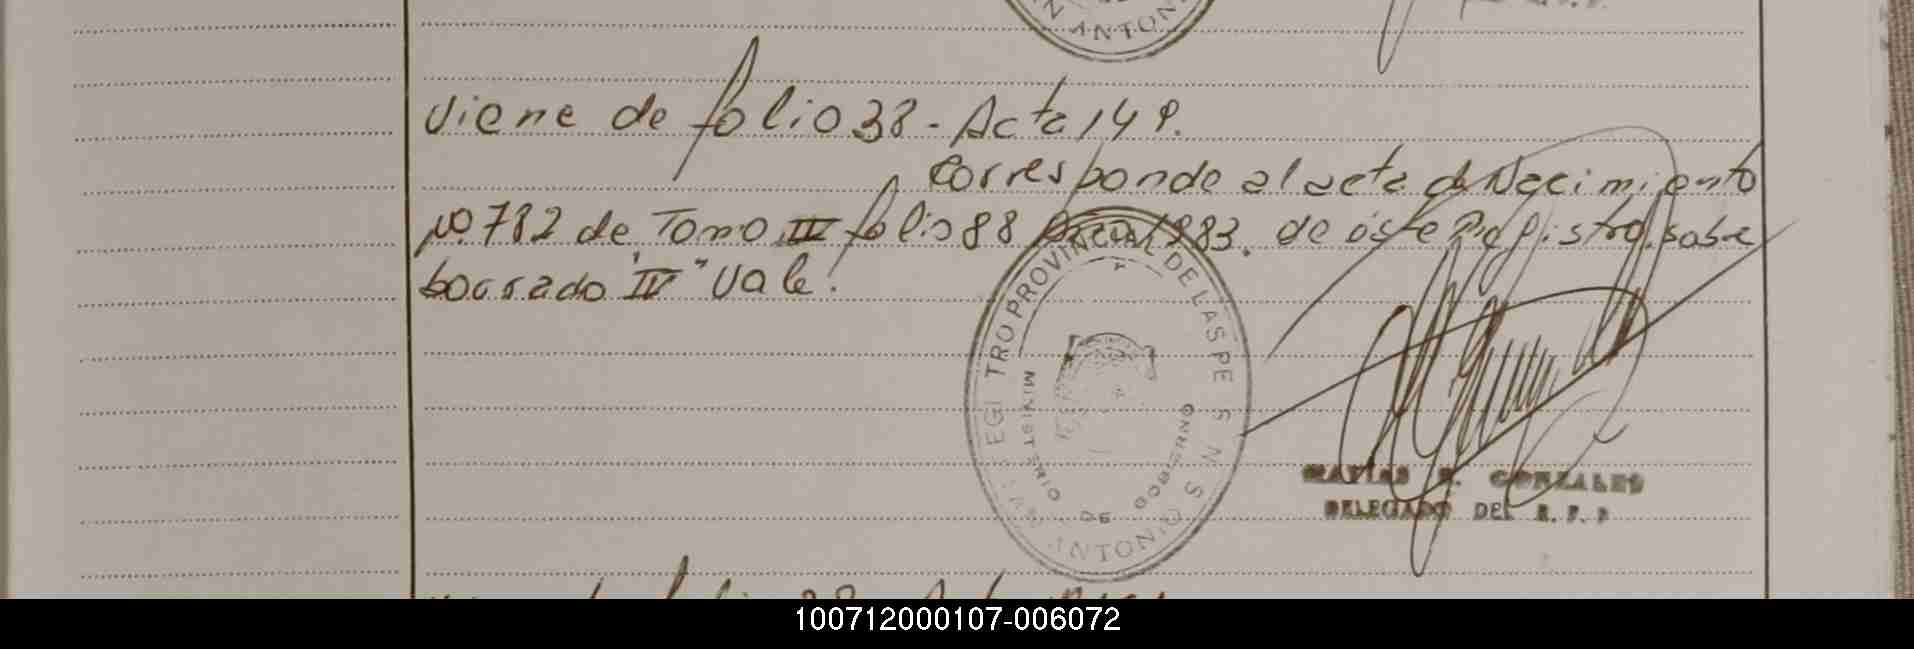 ANTONI
viene de folio 38 - Acta 149.
corresponde al acta de Nacimiento
Nº 782 de Tomo III folio 88 Año 1983. de éste Registro. sobre
borrado "IV" Vale.
REGISTRO PROVINCIAL DE LAS PERSONAS
MINISTERIO DE GOBIERNO
SAN ANTONIO
MATIAS R. GONZALES
DELEGADO DEL R. P. P
100712000107-006072